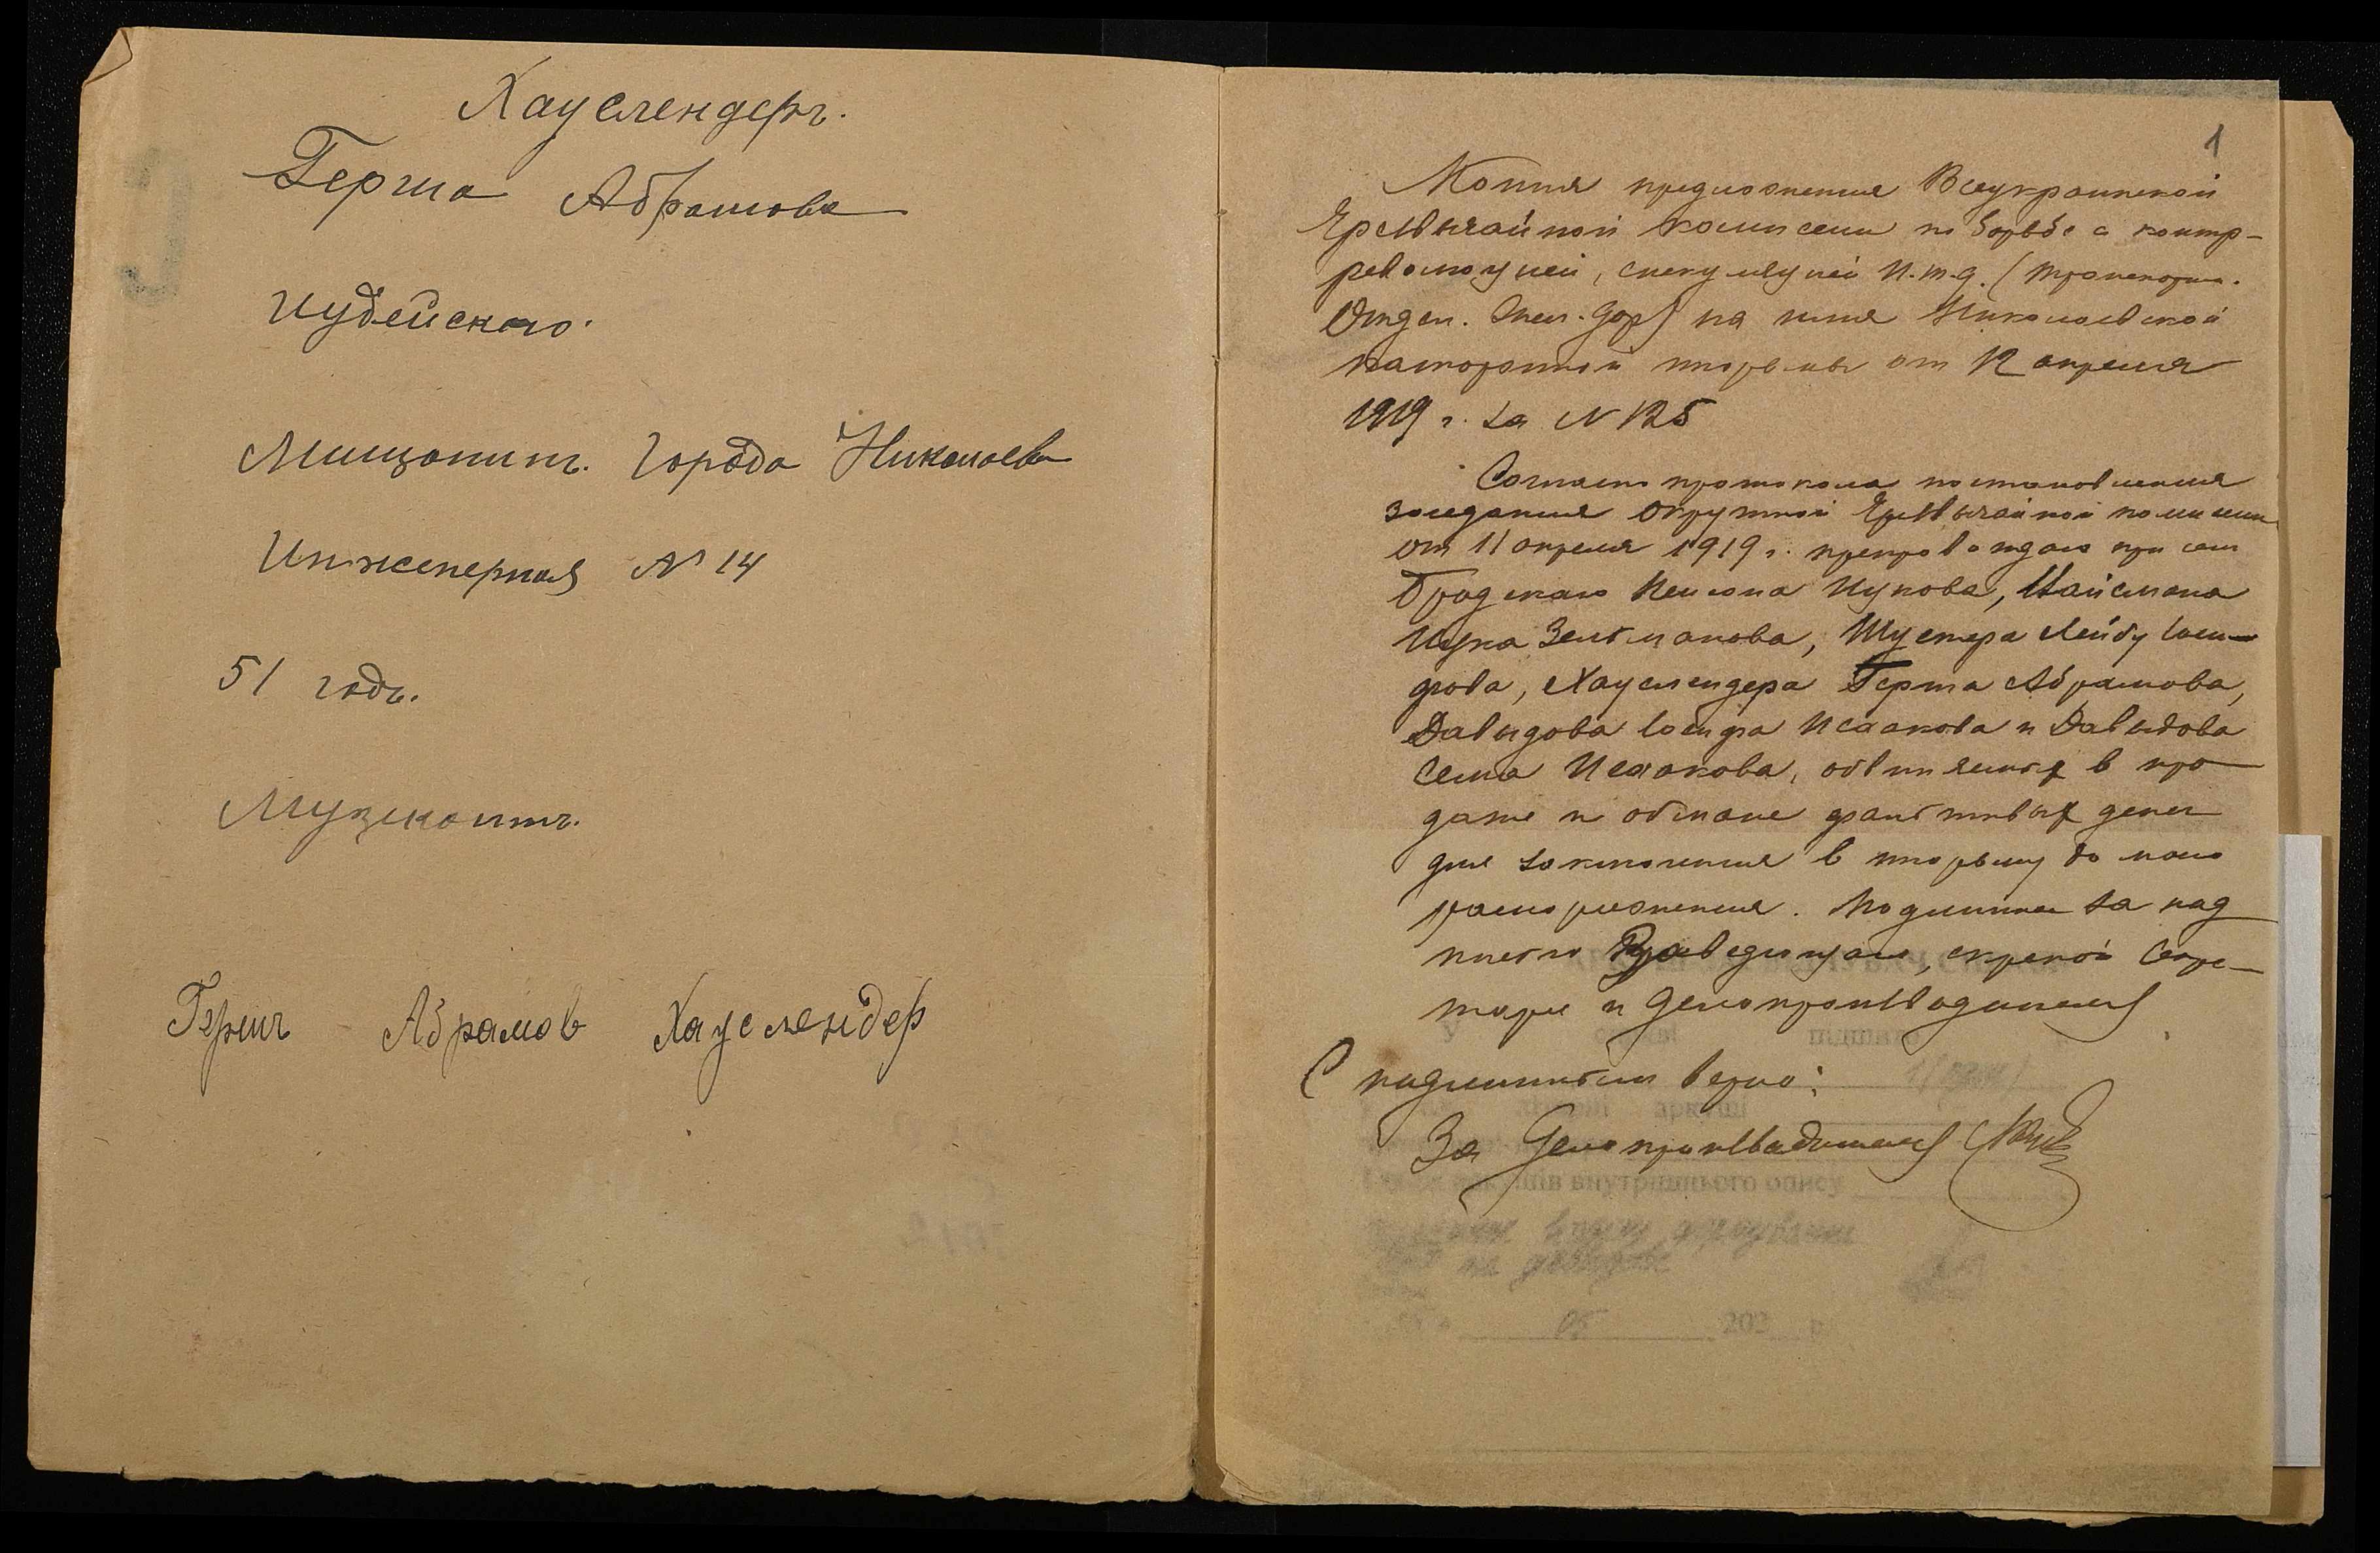 Хауслендеръ.
Герша Абрамовъ
Иудейскаго.
Мищанинъ. Города Николаева
Инженерная № 14
51 годъ.
Музыкантъ.
Гершъ Абрамов Хауслендер
1
Копия предложения Всеукраинской
Чрезвычайной комиссии по борьбе с контр-
революцией, спекуляцией и.т.д. (Транспортн.
Отдел. Жел. дор) на имя Николаевской
каторжной тюрьмы от 12 апреля
1919 г. за N 125
Согласно протокола постановления
заседания Окружной Чрезвычайной комиссии
от 11 апреля 1919 г. препровождаю при сем
Бродскаго Ицкова, Найсмана
Ицка Зельманова, Шустера Лейбу Иоси-
фова, Хауслендера Герша Абрамова,
Давыдова Иосифа Исаакова и Давыдова
Сема Исаакова, обвиняемых в про
даже и обмане фальшивых денег
для заключения в тюрьму до моего
распоряжения. Подлинное за над
писью Заведующаго, скрепой Секре-
таря и Делопроизводителя
С подлинным верно:
За Делопроизводителя
внутрішнього опису
202